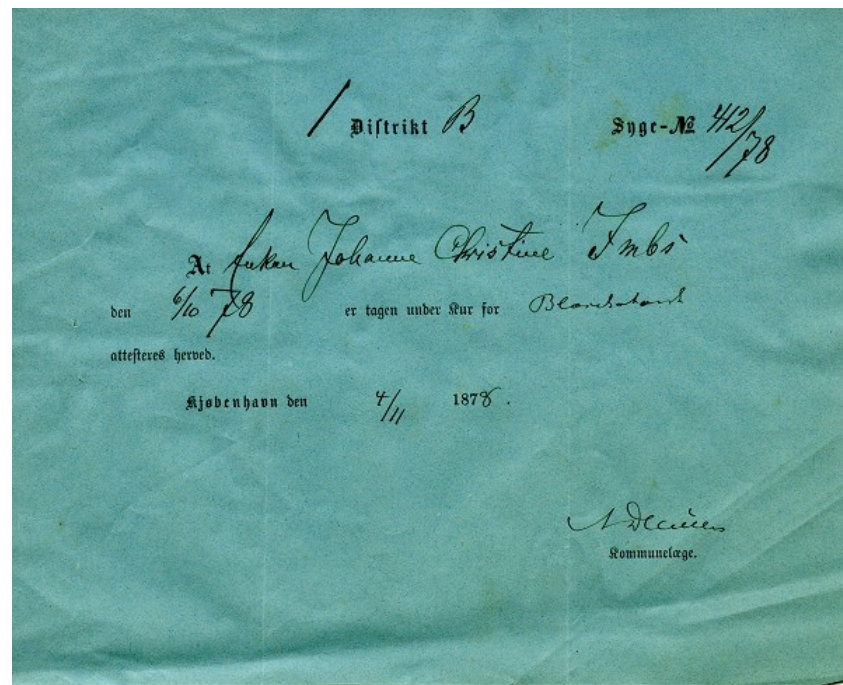 1 Distrikt B Syge-№ 412/78
At Enken Johanne Christine Imbs
den 6/10 78 er tagen under Kur for
attesteres herved.
Kjøbenhavn den 4/11 1878.
Kommunelæge.